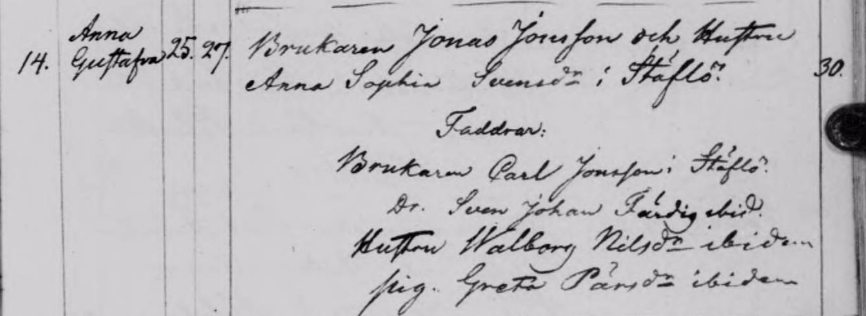 14. Anna Gustafva 25. 27. Brukaren Jonas Jonsson och Hustru
Anna Sophia Svensdr i Ståflö. 30.
Faddrar:
Brukaren Carl Jonsson i Ståflö.
Dr. Sven Johan Färdig ibid.
Hustru Walborg Nilsdr ibidem
pig. Greta Pärsdr ibidem